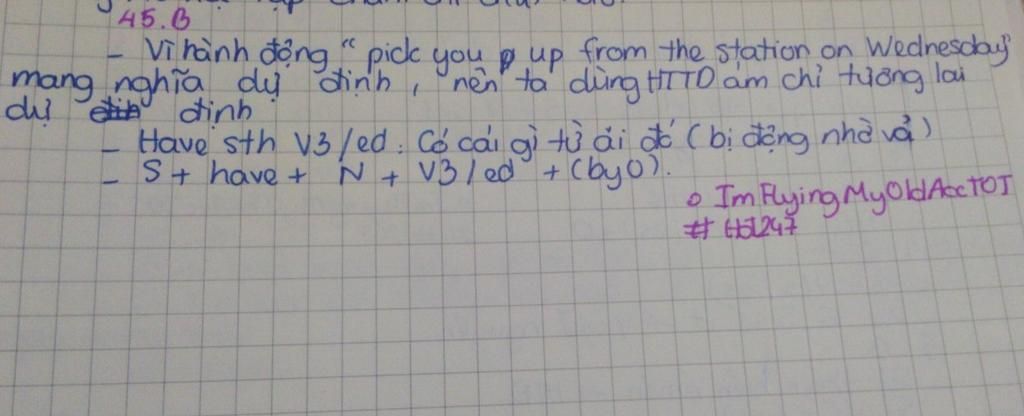 45.B
- Vì hành động " pick you up from the station on Wednesday"
mang nghĩa dự định, nên ta dùng HTTD ám chỉ tương lai
dự định
- Have sth V3/ed: Có cái gì từ ai đó (bị động nhờ vả)
- S + have + N + V3/ed + (by O).
ImFlyingMyOldAccTOT